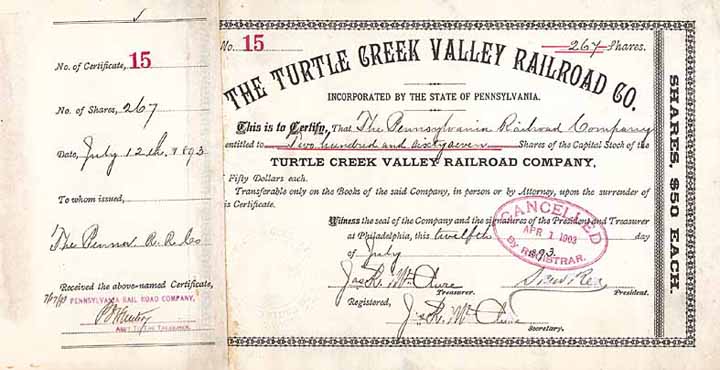 No. of Certificate, 15
No. of Shares, 267
Date, July 12th, 1893
To whom issued,
The Penna R. R. Co
Received the above-named Certificate,
PENNSYLVANIA RAIL ROAD COMPANY,
ASST TO THE TREASURER.
No. 15
267 Shares.
THE TURTLE CREEK VALLEY RAILROAD CO.
INCORPORATED BY THE STATE OF PENNSYLVANIA.
This is to Certify, That The Pennsylvania Railroad Company
entitled to Two hundred and sixty seven Shares of the Capital Stock of the
TURTLE CREEK VALLEY RAILROAD COMPANY,
Fifty Dollars each.
Transferable only on the Books of the said Company, in person or by Attorney, upon the surrender of
is Certificate.
Witness the seal of the Company and the signatures of the President and Treasurer
at Philadelphia, this twelfth day
of July 1893.
CANCELLED
APR 1 1903
BY REGISTRAR.
Jas R. McClure
Treasurer.
President.
Registered,
Jas R. McClure
Secretary.
SHARES, $50 EACH.